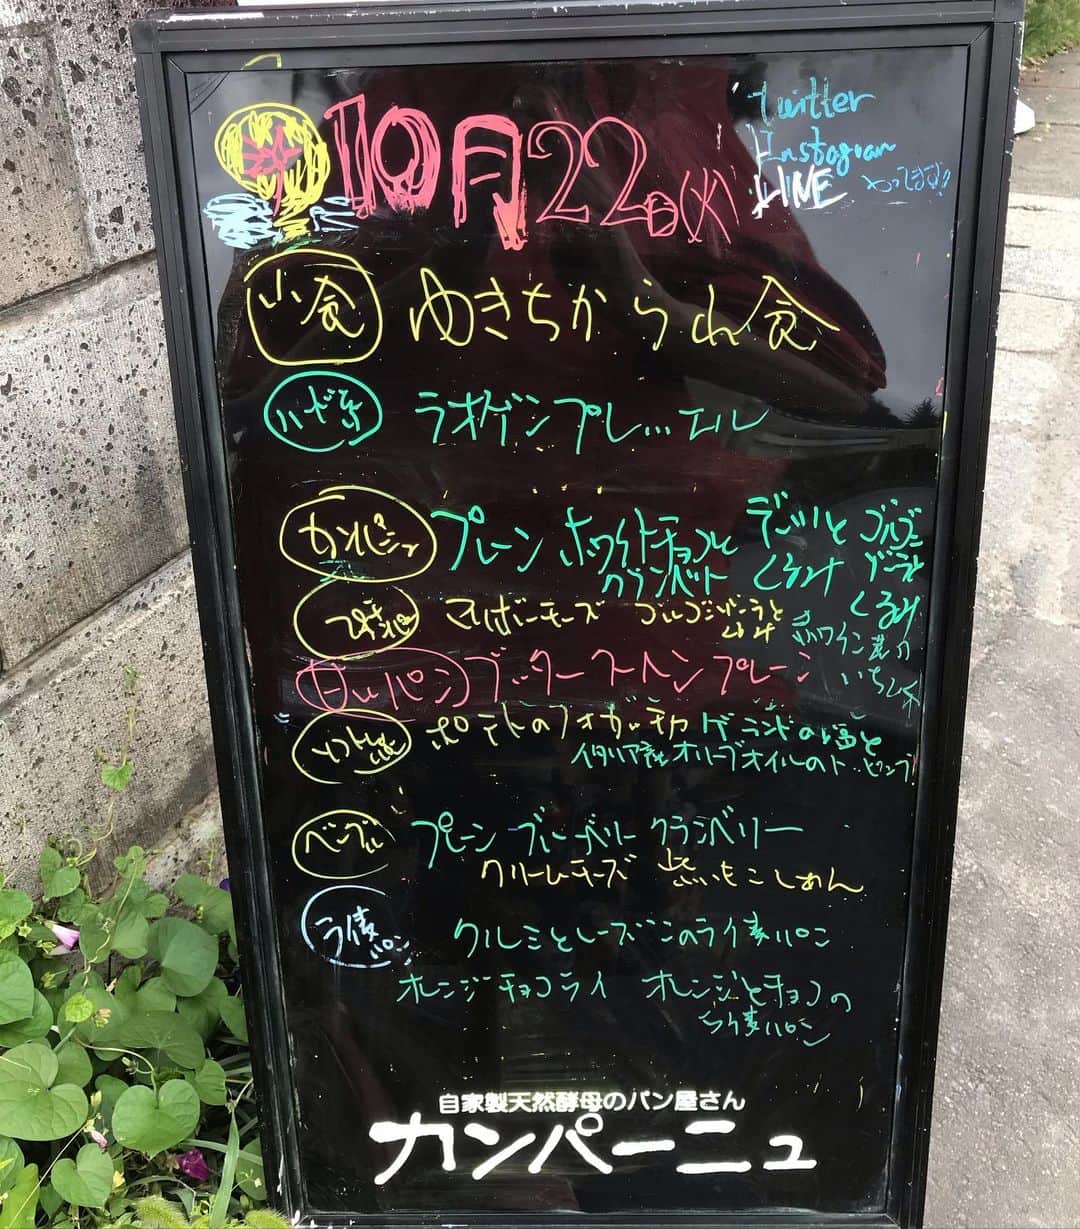 10月22日(火)
Twitter
Instagram
LINE やってます!!
山食 ゆきちから山食
ハード系 ラオゲンブレ… エル
カンパーニュ プレーン ホワイトチョコと クランベリー デーツと くるみ ゴルゴン ゾーラと くるみ
プチパン マイルドチーズ ゴルゴンゾーラと くるみ 赤ワイン煮の いちじく
甘いパン ブッター プレーン
ソフト ポテトのフォカッチャ ゲランドの塩と
イタリア産オリーブオイルの
ベーグル プレーン ブルーベリー クランベリー
クリームチーズ 紫いもこしあん
ライ麦パン クルミとレーズンのライ麦パン
オレンジチョコライ オレンジとチョコの
ライ麦パン
自家製天然酵母のパン屋さん
カンパーニュ